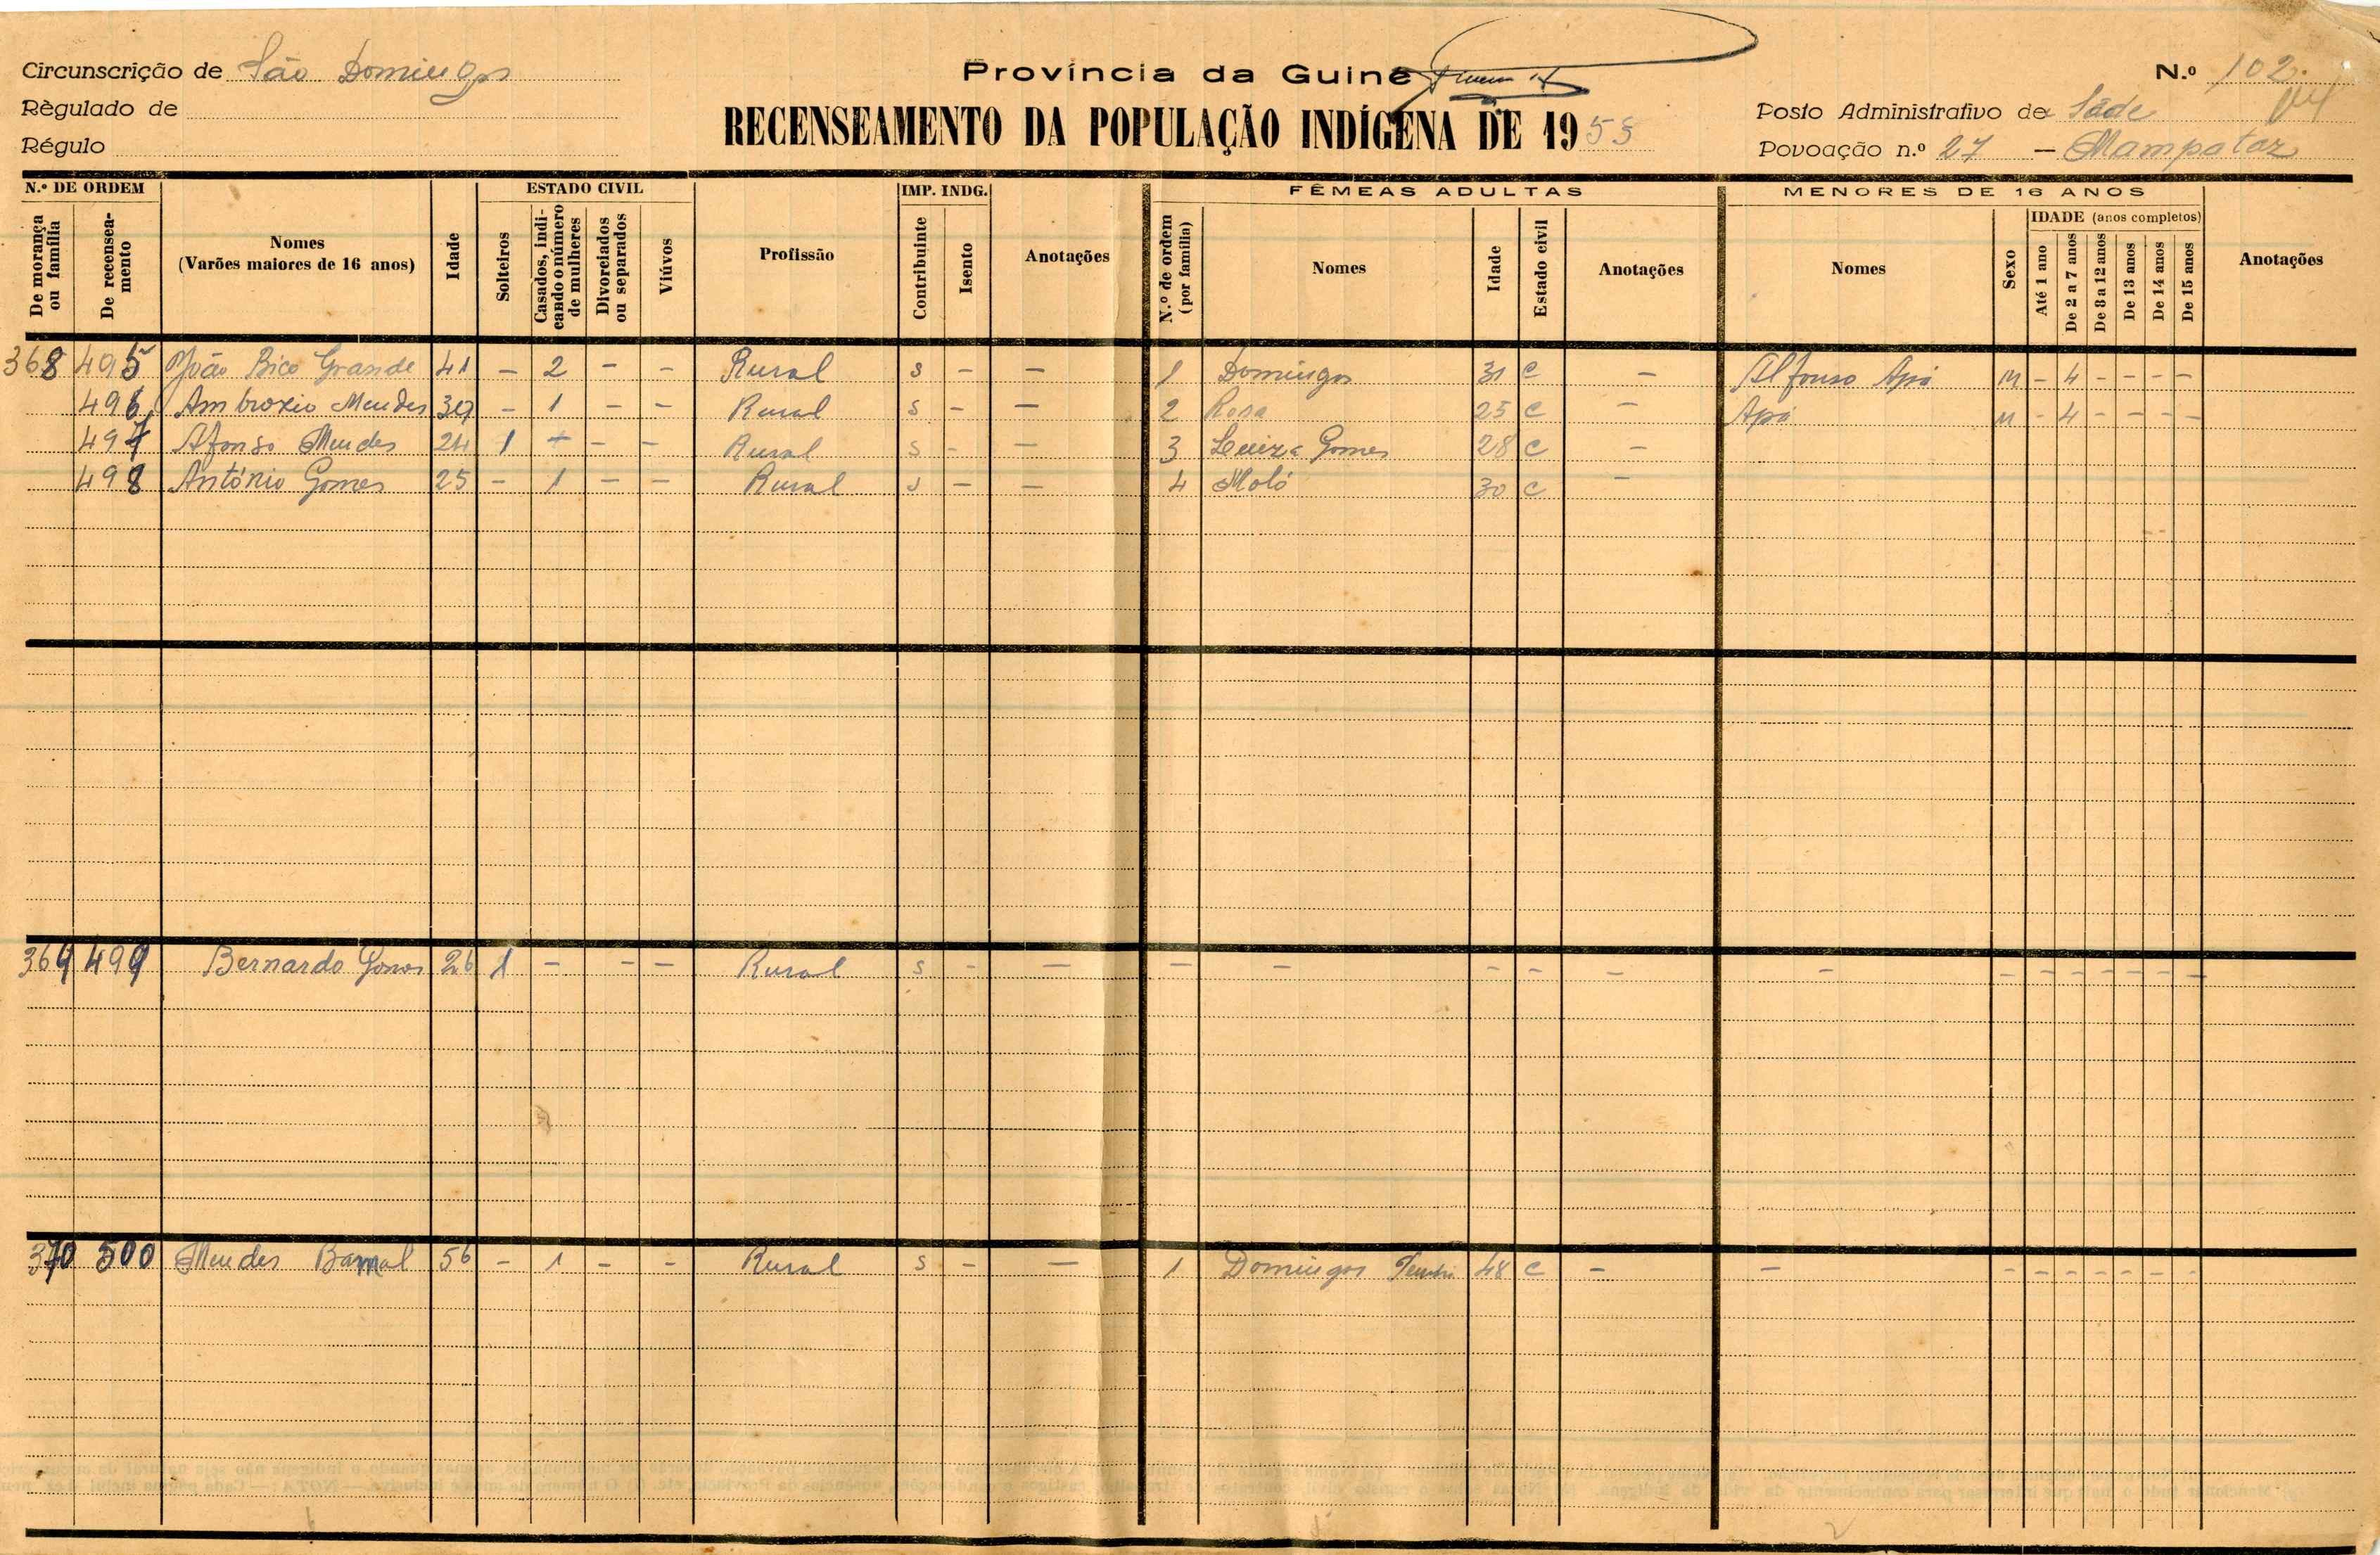 Circunscrição de São Domingos
Règulado de
Régulo
Província da Guiné
RECENSEAMENTO DA POPULAÇÃO INDÍGENA DE 1955
N.º 102
Posto Administrativo de Sáde
Povoação n.º 27 — Mampataz
N.º DE ORDEM
De morança ou família
De recenseamento
Nomes
(Varões maiores de 16 anos)
Idade
ESTADO CIVIL
Solteiros
Casados, indicando o número de mulheres
Divorciados ou separados
Viúvos
Profissão
IMP. INDG.
Contribuinte
Isento
Anotações
FÊMEAS ADULTAS
N.º de ordem (por família)
Nomes
Idade
Estado civil
Anotações
MENORES DE 16 ANOS
Nomes
Sexo
IDADE (anos completos)
Até 1 ano
De 2 a 7 anos
De 8 a 12 anos
De 13 anos
De 14 anos
De 15 anos
Anotações
368 495 João Bico Grande 41 – 2 – – Rural s – – 1 Domingos 31 C – Alfonso Apá M – 4 – – – –
496 Ambrozio Mendes 39 – 1 – – Rural s – – 2 Rosa 25 C – Apá M – 4 – – – –
497 Afonso Mendes 24 1 – – – Rural s – – 3 Luiza Gomes 28 C –
498 António Gomes 25 – 1 – – Rural s – – 4 Moló 30 C –
369 499 Bernardo Gomes 26 1 – – – Rural s – – – – – – – – – – – – – – –
370 500 Mendes Barnal 56 – 1 – – Rural s – – 1 Domingos 48 C – – – – – – – – –